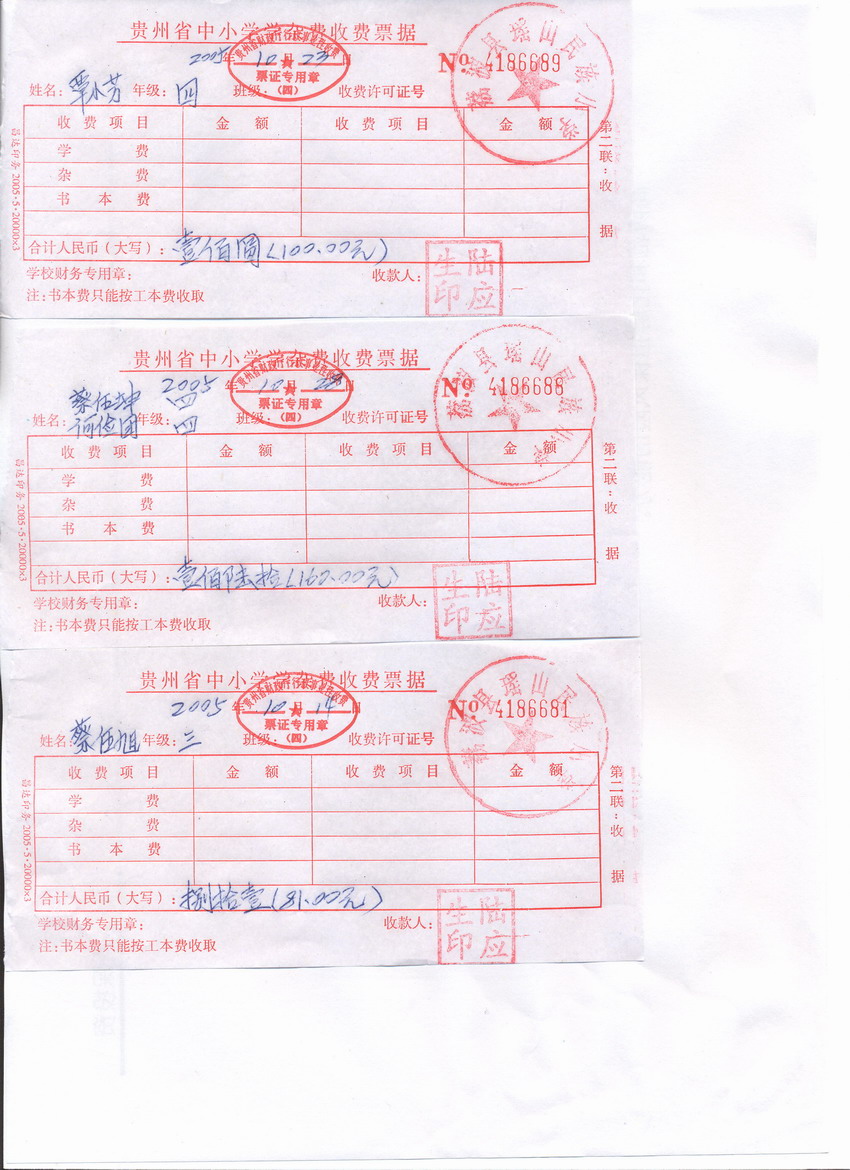 贵州省中小学学杂费收费票据
2005年10月23日 № 4186689
姓名:覃小芳 年级:四 班级: 收费许可证号
票证专用章
(四)
荔波县瑶山民族小学
收费项目 金额 收费项目 金额
学费
杂费
书本费
合计人民币(大写):壹佰圆(100.00元)
学校财务专用章: 收款人: 陆应生印
注:书本费只能按工本费收取
第二联:收据
2005·5·20000×3
贵州省中小学学杂费收费票据
2005年10月23日 № 4186688
蔡伍坤 四
姓名: 年级:四 班级: 收费许可证号
票证专用章
(四)
荔波县瑶山民族小学
收费项目 金额 收费项目 金额
学费
杂费
书本费
合计人民币(大写):壹佰陆拾(160.00元)
学校财务专用章: 收款人: 陆应生印
注:书本费只能按工本费收取
第二联:收据
2005·5·20000×3
贵州省中小学学杂费收费票据
2005年10月14日 № 4186681
姓名:蔡伍旭 年级:三 班级: 收费许可证号
票证专用章
(四)
荔波县瑶山民族小学
收费项目 金额 收费项目 金额
学费
杂费
书本费
合计人民币(大写):捌拾壹(81.00元)
学校财务专用章: 收款人: 陆应生印
注:书本费只能按工本费收取
第二联:收据
2005·5·20000×3